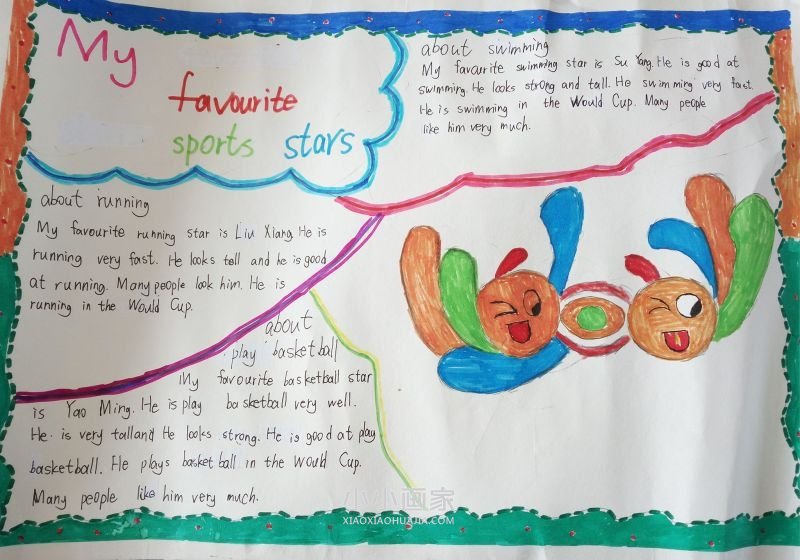 My
favourite
sports stars
about swimming
My favourite swimming star is Su Yang. He is good at
swimming. He looks strong and tall. He swimming very fast.
He is swimming in the Would Cup. Many people
like him very much.
about running
My favourite running star is Liu Xiang. He is
running very fast. He looks tell and he is good
at running. Many people look him. He is
running in the Would Cup.
about
play basketball
My favourite basketball star
is Yao Ming. He is play basketball very well.
He is very tall and He looks strong. He is good at play
basketball. He plays basket ball in the Would Cup.
Many people like him very much.
小小画家
XIAOXIAOHUAJIA.COM